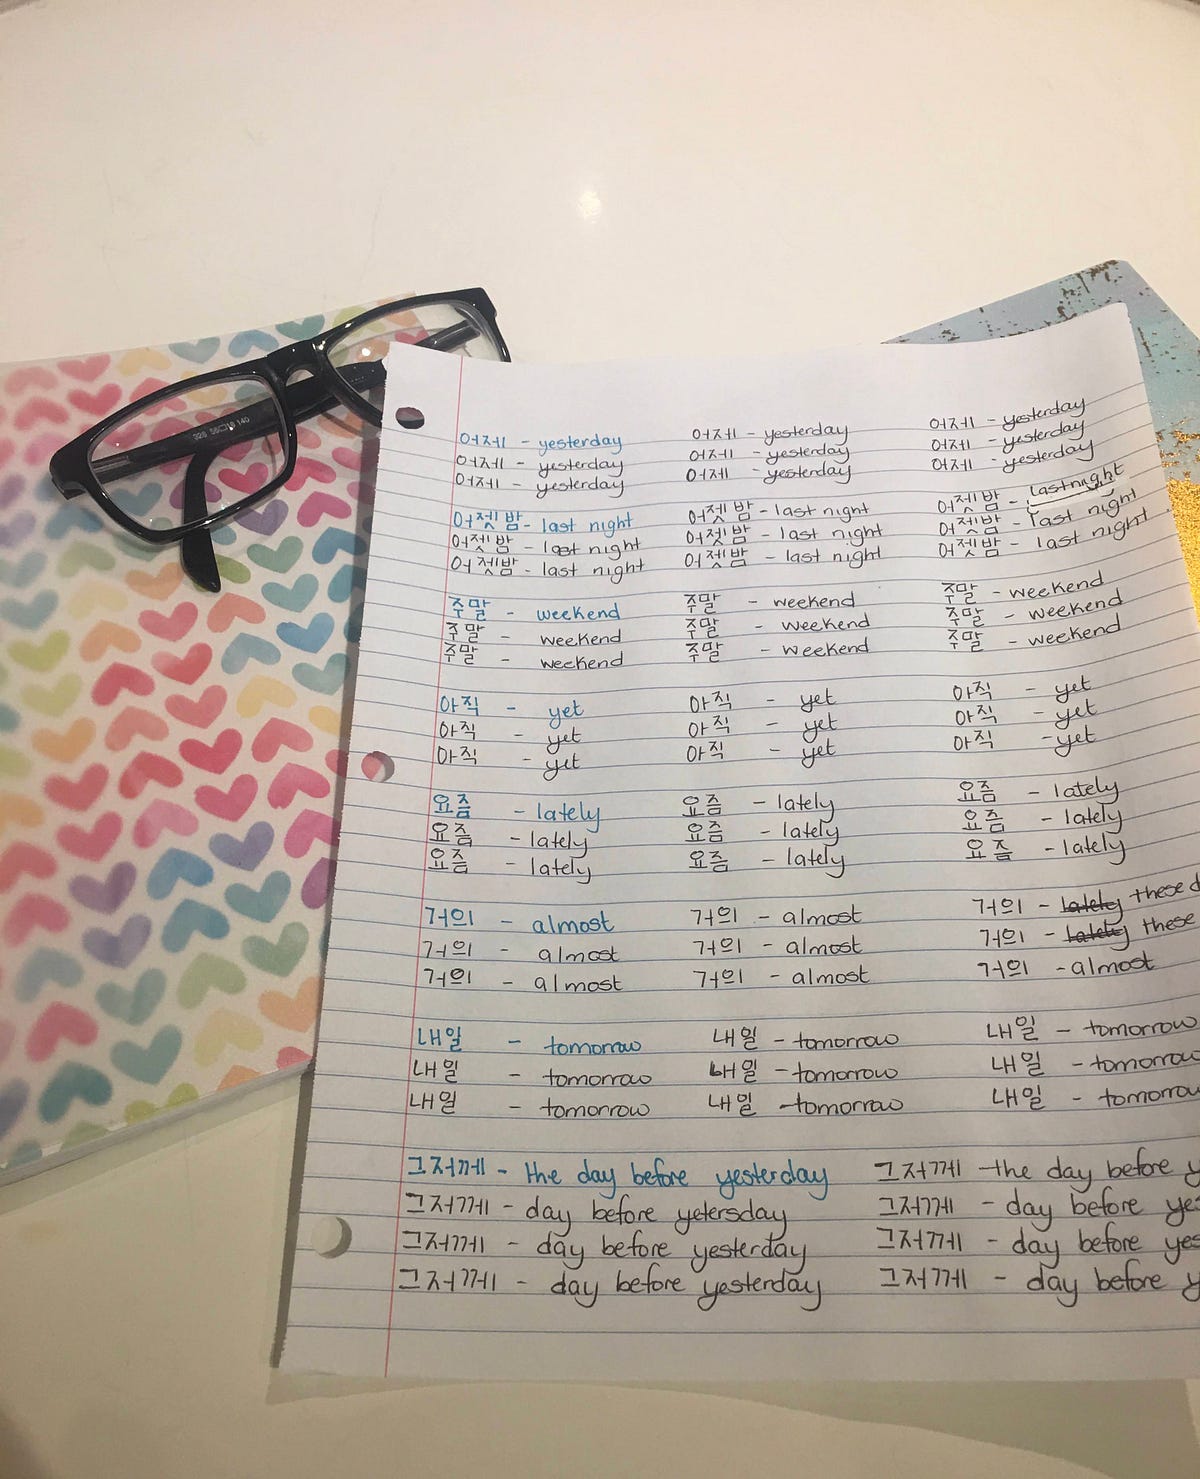 328 55□18 140
어제 - yesterday 어제 - yesterday 어제 - yesterday
어제 - yesterday 어제 - yesterday 어제 - yesterday
어제 - yesterday 어제 - yesterday 어제 - yesterday
어젯밤 - last night 어젯밤 - last night 어젯밤 - last night
어젯밤 - last night 어젯밤 - last night 어젯밤 - last night
어젯밤 - last night 어젯밤 - last night 어젯밤 - last night
주말 - weekend 주말 - weekend 주말 - weekend
주말 - weekend 주말 - weekend 주말 - weekend
주말 - weekend 주말 - weekend 주말 - weekend
아직 - yet 아직 - yet 아직 - yet
아직 - yet 아직 - yet 아직 - yet
아직 - yet 아직 - yet 아직 - yet
요즘 - lately 요즘 - lately 요즘 - lately
요즘 - lately 요즘 - lately 요즘 - lately
요즘 - lately 요즘 - lately 요즘 - lately
거의 - almost 거의 - almost 거의 - lately these d
거의 - almost 거의 - almost 거의 - lately these
거의 - almost 거의 - almost 거의 - almost
내일 - tomorrow 내일 - tomorrow 내일 - tomorrow
내일 - tomorrow 내일 - tomorrow 내일 - tomorrow
내일 - tomorrow 내일 - tomorrow 내일 - tomorrow
그저께 - the day before yesterday 그저께 - the day before y
그저께 - day before yetersday 그저께 - day before yes
그저께 - day before yesterday 그저께 - day before yes
그저께 - day before yesterday 그저께 - day before y